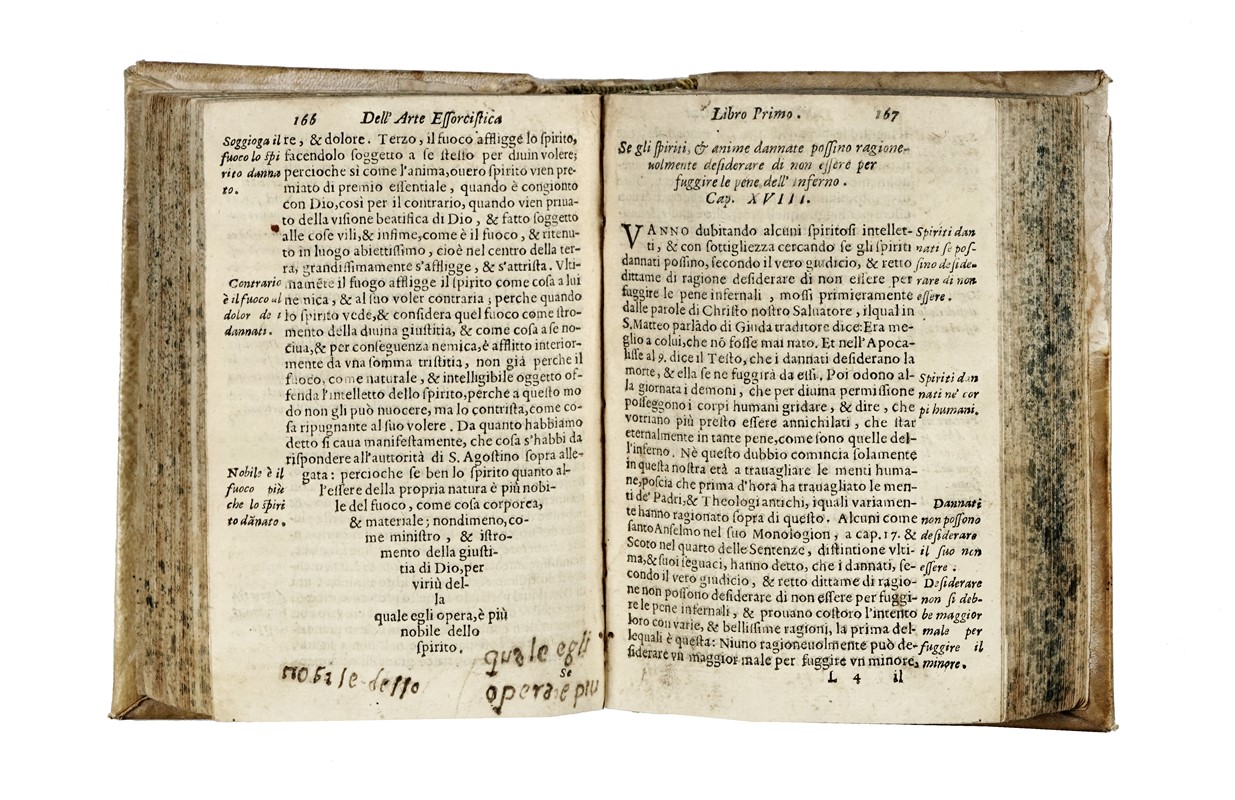 166 Dell'Arte Essorcistica
Soggioga il
fuoco lo spi
rito danna
to.
re, & dolore. Terzo, il fuoco affligge lo spirito,
facendolo soggetto a se stesso per diuin volere;
percioche si come l'anima, ouero spirito vien pre-
miato di premio essentiale, quando è congionto
con Dio, così per il contrario, quando vien priua-
to della visione beatifica di Dio, & fatto soggetto
alle cose vili, & infime, come è il fuoco, & ritenu-
to in luogo abiettissimo, cioè nel centro della ter-
ra, grandissimamente s'affligge, & s'attrista. Vlti-
namẽte il fuogo affligge il spirito come cosa a lui
ne nica, & al suo voler contraria; perche quando
lo spirito vede, & considera quel fuoco come stro-
mento della diuina giustitia, & come cosa a se no-
ciua, & per conseguenza nemica, è afflitto interior-
mente da vna somma tristitia, non già perche il
fuoco, come naturale, & intelligibile oggetto of-
fenda l'intelletto dello spirito, perche a questo mo
do non gli può nuocere, ma lo contrista, come co-
sa ripugnante al suo volere. Da quanto habbiamo
detto si caua manifestamente, che cosa s'habbi da
rispondere all'auttorità di S. Agostino sopra alle-
gata: percioche se ben lo spirito quanto al-
l'essere della propria natura è più nobi-
le del fuoco, come cosa corporea,
& materiale; nondimeno, co-
me ministro, & istro-
mento della giusti-
tia di Dio, per
viriù del-
la
quale egli opera, è più
nobile dello
spirito.
Contrario
è il fuoco al
dolor de i
dannati.
Nobile è il
fuoco più
che lo spiri
to dãnato.
Se
quale egli
nobile dello
opera è piu
Libro Primo. 167
Se gli spiriti, & anime dannate possino ragione-
uolmente desiderare di non essere per
fuggire le pene dell'inferno.
Cap. XVIII.
VANNO dubitando alcuni spiritosi intellet-
ti, & con sottigliezza cercando se gli spiriti
dannati possino, secondo il vero giudicio, & retto
dittame di ragione desiderare di non essere per
fuggire le pene infernali, mossi primieramente
dalle parole di Christo nostro Saluatore, ilqual in
S. Matteo parlãdo di Giuda traditore dice: Era me-
glio a colui, che nõ fosse mai nato. Et nell'Apoca-
lisse al 9. dice il Testo, che i dannati desiderano la
morte, & ella se ne fuggirà da essi. Poi odono al-
la giornata i demoni, che per diuina permissione
posseggono i corpi humani gridare, & dire, che
vorriano più presto essere annichilati, che star
eternalmente in tante pene, come sono quelle del-
l'inferno. Nè questo dubbio comincia solamente
in questa nostra età a trauagliare le menti huma-
ne, poscia che prima d'hora ha trauagliato le men-
ti de' Padri, & Theologi antichi, iquali variamen-
te hanno ragionato sopra di questo. Alcuni come
santo Anselmo nel suo Monologion, a cap. 17. &
Scoto nel quarto delle Sentenze, distintione vlti-
ma, & suoi seguaci, hanno detto, che i dannati, se-
condo il vero giudicio, & retto dittame di ragio-
ne non possono desiderare di non essere per fuggi-
re le pene infernali, & prouano costoro l'intento
loro con varie, & bellissime ragioni, la prima del-
lequali è questa: Niuno ragioneuolmente può de-
siderare vn maggior male per fuggire vn minore,
Spiriti dan
nati se pos-
sino deside-
rare di non
essere.
Spiriti dan
nati ne' cor
pi humani.
Dannati
non possono
desiderare
il suo non
essere.
Desiderare
non si deb-
be maggior
male per
fuggire il
minore.
L 4 il